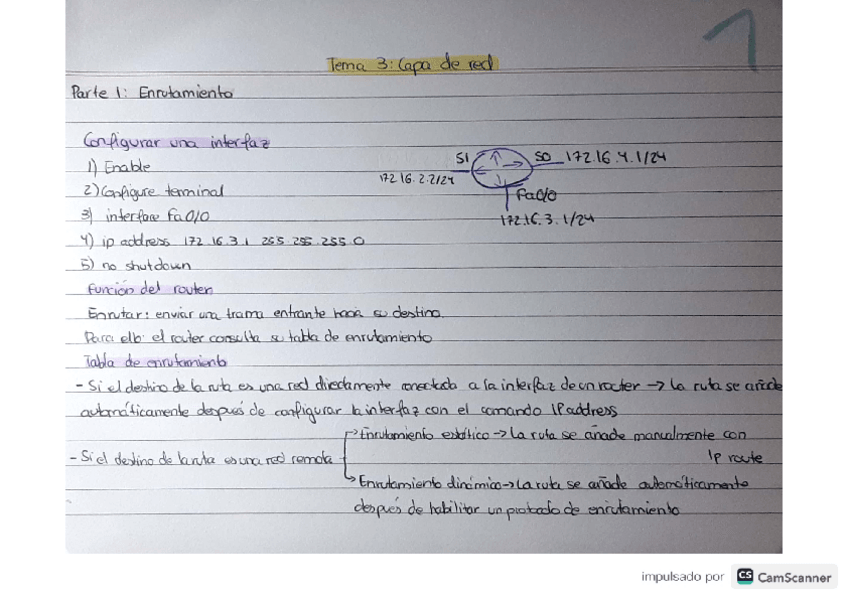 1
Tema 3: Capa de red
Parte 1: Enrutamiento
Configurar una interfaz
1) Enable
2) Configure terminal
3) interface Fa0/0
4) ip address 172.16.3.1 255.255.255.0
5) no shutdown
S1
S0 172.16.4.1/24
172.16.2.2/24
Fa0/0
172.16.3.1/24
Función del router
Enrutar: enviar una trama entrante hacia su destino.
Para ello: el router consulta su tabla de enrutamiento
Tabla de enrutamiento
- Si el destino de la ruta es una red directamente conectada a la interfaz de un router → la ruta se añade
automáticamente después de configurar la interfaz con el comando IP address
- Si el destino de la ruta es una red remota
Enrutamiento estático → la ruta se añade manualmente con
Ip route
Enrutamiento dinámico → la ruta se añade automáticamente
después de habilitar un protocolo de enrutamiento
impulsado por CS CamScanner